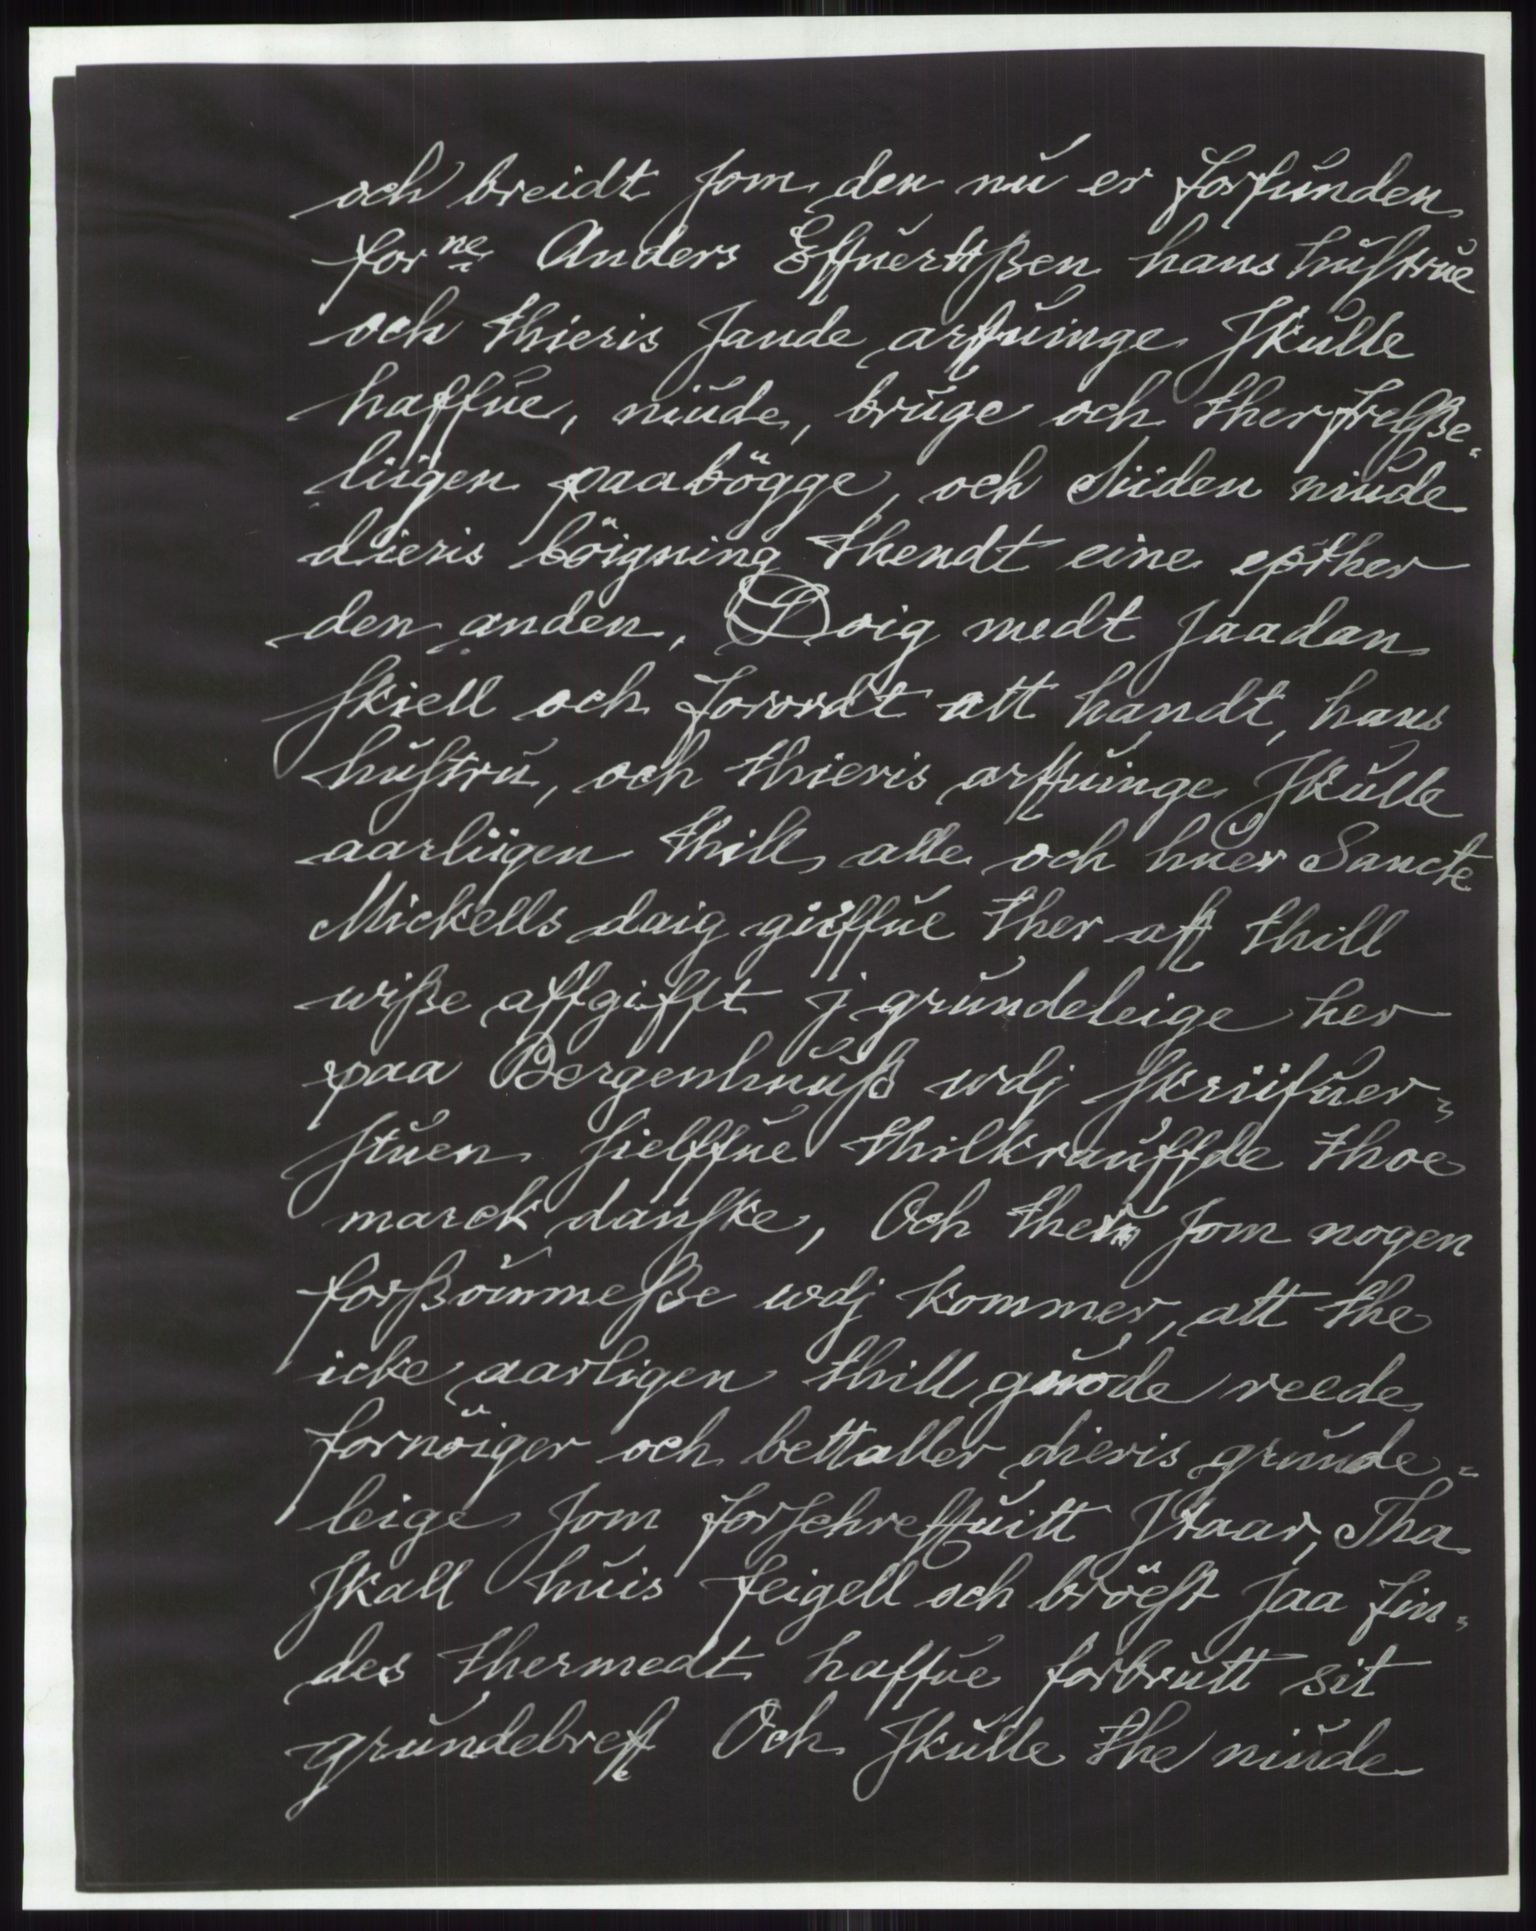 och breidt som den nu er forfunden
forne Anders Effuerttßen hans hustrue
och thieris sande arffuinge skulle
haffue, niude, bruge och ther frelße-
liigen paabögge, och siiden niude
dieris böigning thendt eine epther
den anden, Doig medt saadan
skiell och forordt att handt, hans
hustru, och thieris arffuinge skulle
aarliigen thill alle och huer Sancte
Mickells daig giiffue ther aff thill
wiße affgifft j grundeleige her
paa Bergenhuuß wdj skriifuer-
stuen sielffue thilkrauffde thoe
marck danske, Och ther som nogen
forßöimmeße wdj kommer, att the
icke aarligen thill guode reede
fornöiger och bettaller dieris grunde-
leige som forschreffuitt staar, Tha
skall huis feigell och bröst saa fin-
des thermedt haffue forbrutt sit
grundebreff Och skulle the niude